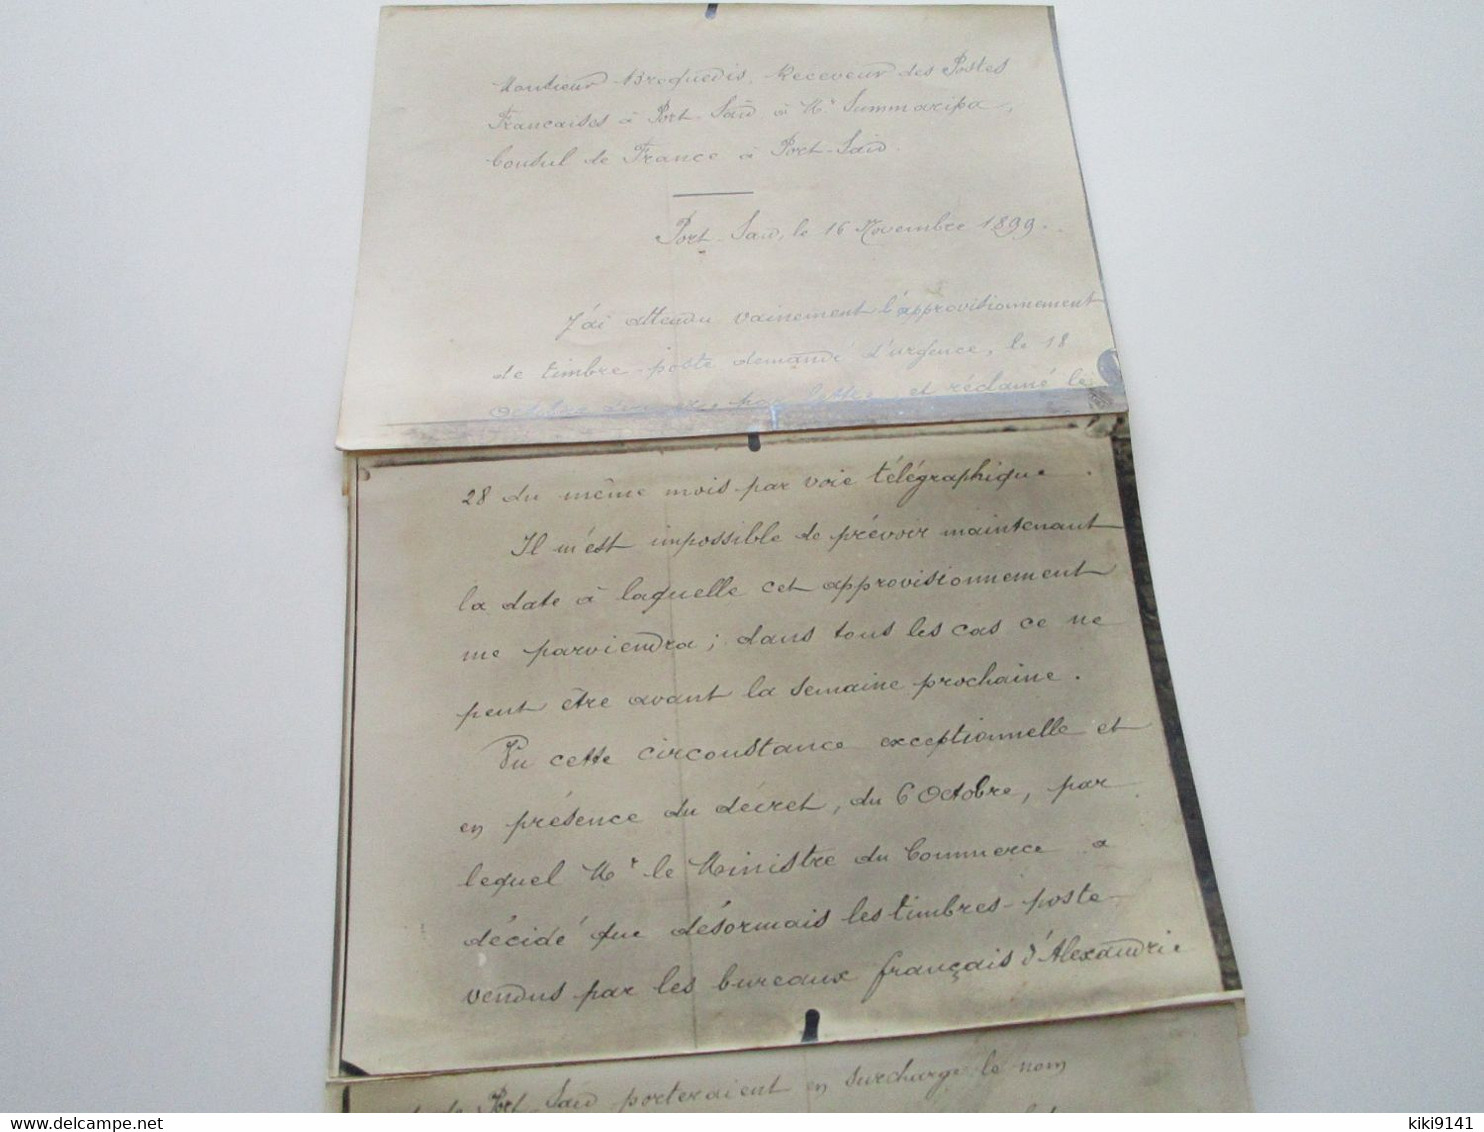 Monsieur Broquedis, Receveur des Postes
Françaises à Port-Saïd à Mr Summaripa,
Consul de France à Port-Saïd.
Port-Saïd, le 16 Novembre 1899.
J'ai attendu vainement l'approvisionnement
de timbre-poste demandé d'urgence, le 18
Octobre dernier, par lettre, et réclamé le
28 du même mois par voie télégraphique.
Il m'est impossible de prévoir maintenant
la date à laquelle cet approvisionnement
me parviendra; dans tous les cas ce ne
peut être avant la semaine prochaine.
Vu cette circonstance exceptionnelle et
en présence du décret, du 6 Octobre, par
lequel Mr le Ministre du Commerce a
décidé que désormais les timbres-poste
vendus par les bureaux français d'Alexandrie
et de Port Saïd porteraient en surcharge le nom
delcampe.net
kiki9141